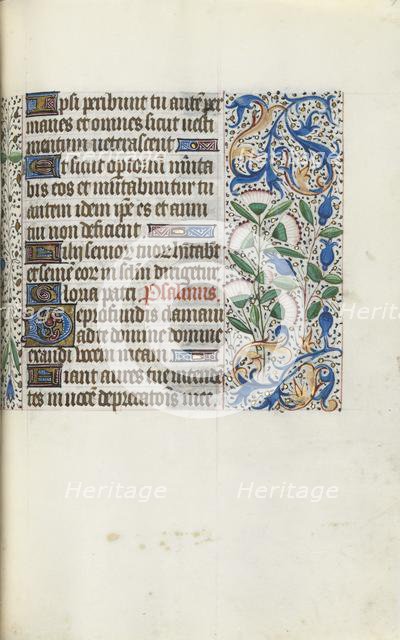 Ipsi peribunt tu autē per
manes et omnes sicut vesti
mentum veterascent
Et sicut opertoriū muta
bis eos et mutabuntur tu
autem idem ip̄e es et anni
tui non deficient
Filii servor tuor habitab
et semē eor in sclm dirigetur
Gloria patri Psalmus
De profundis clamavi
ad te domine domine
exaudi vocem meam
Fiant aures tue intende
tes in vocē deprecatiois mee
Heritage Heritage
Heritage Heritage
Heritage Heritage